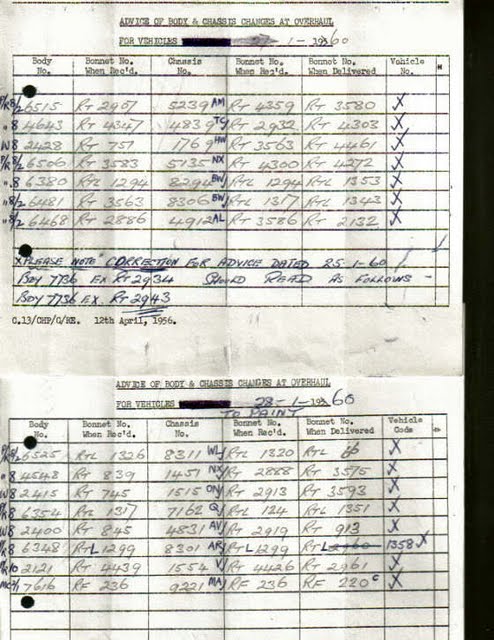 ADVICE OF BODY & CHASSIS CHANGES AT OVERHAUL
FOR VEHICLES 27-1-1960
Body No. Bonnet No. When Rec'd. Chassis No. Bonnet No. When Rec'd Bonnet No. When Delivered Vehicle No.
P/R8/2 6515 RT 2907 5239 AM RT 4359 RT 3580 X
" 8 4643 RT 4347 4839 TC RT 2932 RT 4303 X
W8 2428 RT 757 1769 HW RT 3563 RT 4461 X
P/R8/2 6506 RT 3583 5135 NX RT 4300 RT 4272 X
" 8/2 6380 RTL 1294 8294 BW RTL 1294 RTL 1353 X
" 8/2 6481 RT 3563 8306 EW RTL 1317 RTL 1343 X
" 8/2 6468 RT 2886 4912 AL RT 3586 RT 2132 X
X PLEASE NOTE CORRECTION FOR ADVICE DATED 25-1-60
BODY 7736 EX RT 2934 SHOULD READ AS FOLLOWS -
BODY 7736 EX. RT 2943
C.13/CHP/G/RE. 12th April, 1956.
ADVICE OF BODY & CHASSIS CHANGES AT OVERHAUL
FOR VEHICLES 28-1-1960
TO PAINT
Body No. Bonnet No. When Rec'd. Chassis No. Bonnet No. When Rec'd. Bonnet No. When Delivered Vehicle Code
P/R8/2 6525 RTL 1326 8311 WL RTL 1320 RTL X
" 8 4548 RT 839 1451 NX RT 2888 RT 3575 X
W8 2415 RT 745 1515 ON RT 2913 RT 3593 X
P/R8 6354 RTL 1317 7162 Q RTL 124 RTL 1351 X
W8 2400 RT 845 4831 AV RT 2919 RT 913 X
P/R8 6348 RTL 1299 8301 AR RTL 1299 RTL 2960 1358 X
P/R10 2121 RT 4439 1554 V RT 4426 RT 2961 X
7616 RF 236 9221 MA RF 236 RF 220 C X